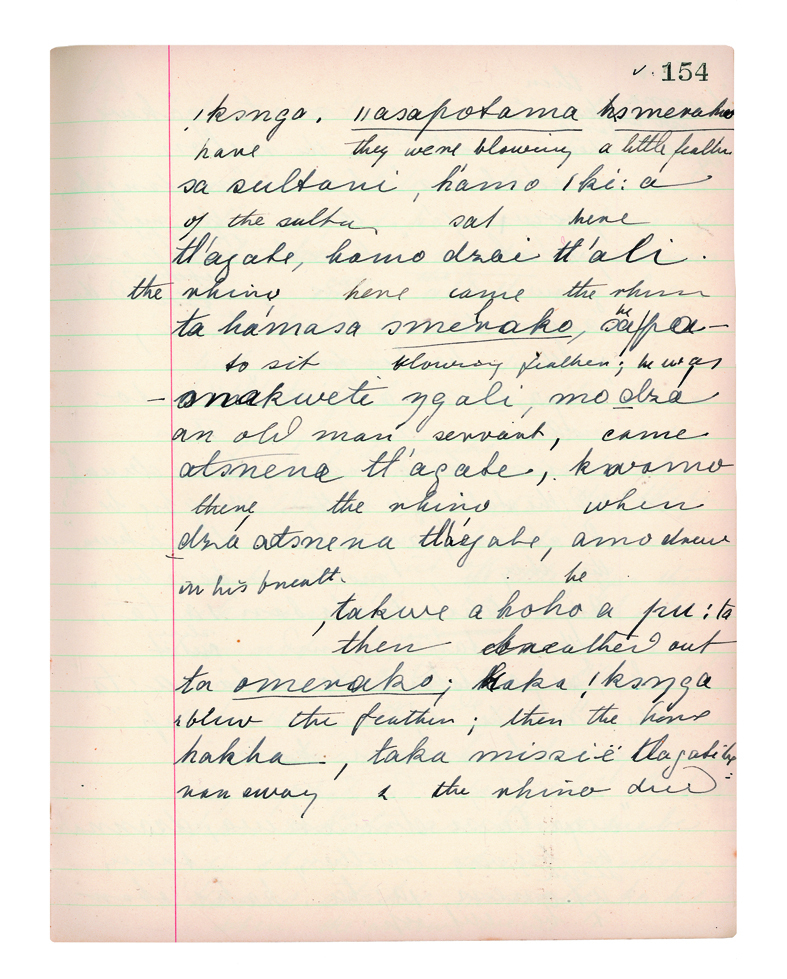 ✓. 154
!kɜnga. ǁasapotama kɜmerako
hare they were blowing a little feather
sa sultani, hámo ǀki: a
of the sultan sat here
tl'agate, hamo dzai tl'ali.
the rhino, here came the rhino
ta hámasa ɜmerako, sáfpa-
he
to sit blowing feather; he was
-anakweti ŋgali, mo dzá
an old man servant, came
atsnena tl'agate, kwamo
there the rhino when
dzá atsnena tl'agate, amo drew
in his breath. he
, takwe a hoho a pu: ta
then breathed out
ta omerako; haka !kɜŋga
blew the feather; then the hare
hakha, taka missië tlagate
ran away & the rhino died